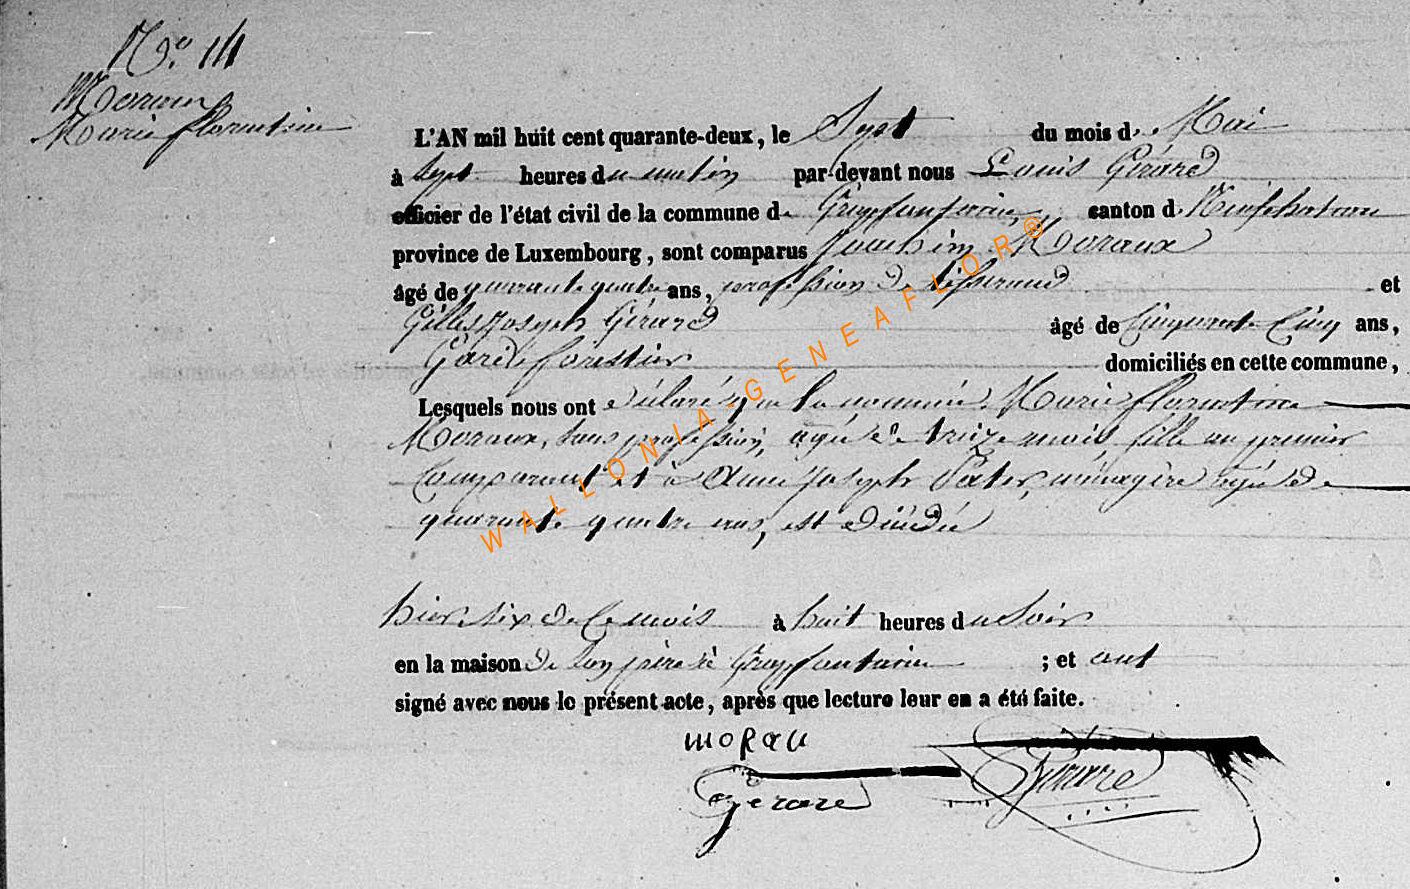 N.° 14
Moraux
Marie florentine
L'AN mil huit cent quarante-deux, le Sept du mois de Mai
à Sept heures du matin par-devant nous Louis Gérard
officier de l'état civil de la commune de Grapfontaine canton de Neufchateau
province de Luxembourg, sont comparus Joachim Moraux
âgé de quarante quatre ans, profession de tisserand et
Gilles Joseph Gérard âgé de Cinquante Cinq ans,
Garde forestier domiciliés en cette commune,
Lesquels nous ont déclaré que la nommée Marie florentine
Moraux, sans profession, agée de treize mois fille au premier
Comparant et à Anne Joseph ménagère agée de
quarante quatre ans, est décédée
hier six de Ce mois à huit heures du Soir
en la maison de son père à Grapfontaine ; et ont
signé avec nous le présent acte, après que lecture leur en a été faite.
morau
Gérard Gerard
WALLONIA-GENEAFLOR®